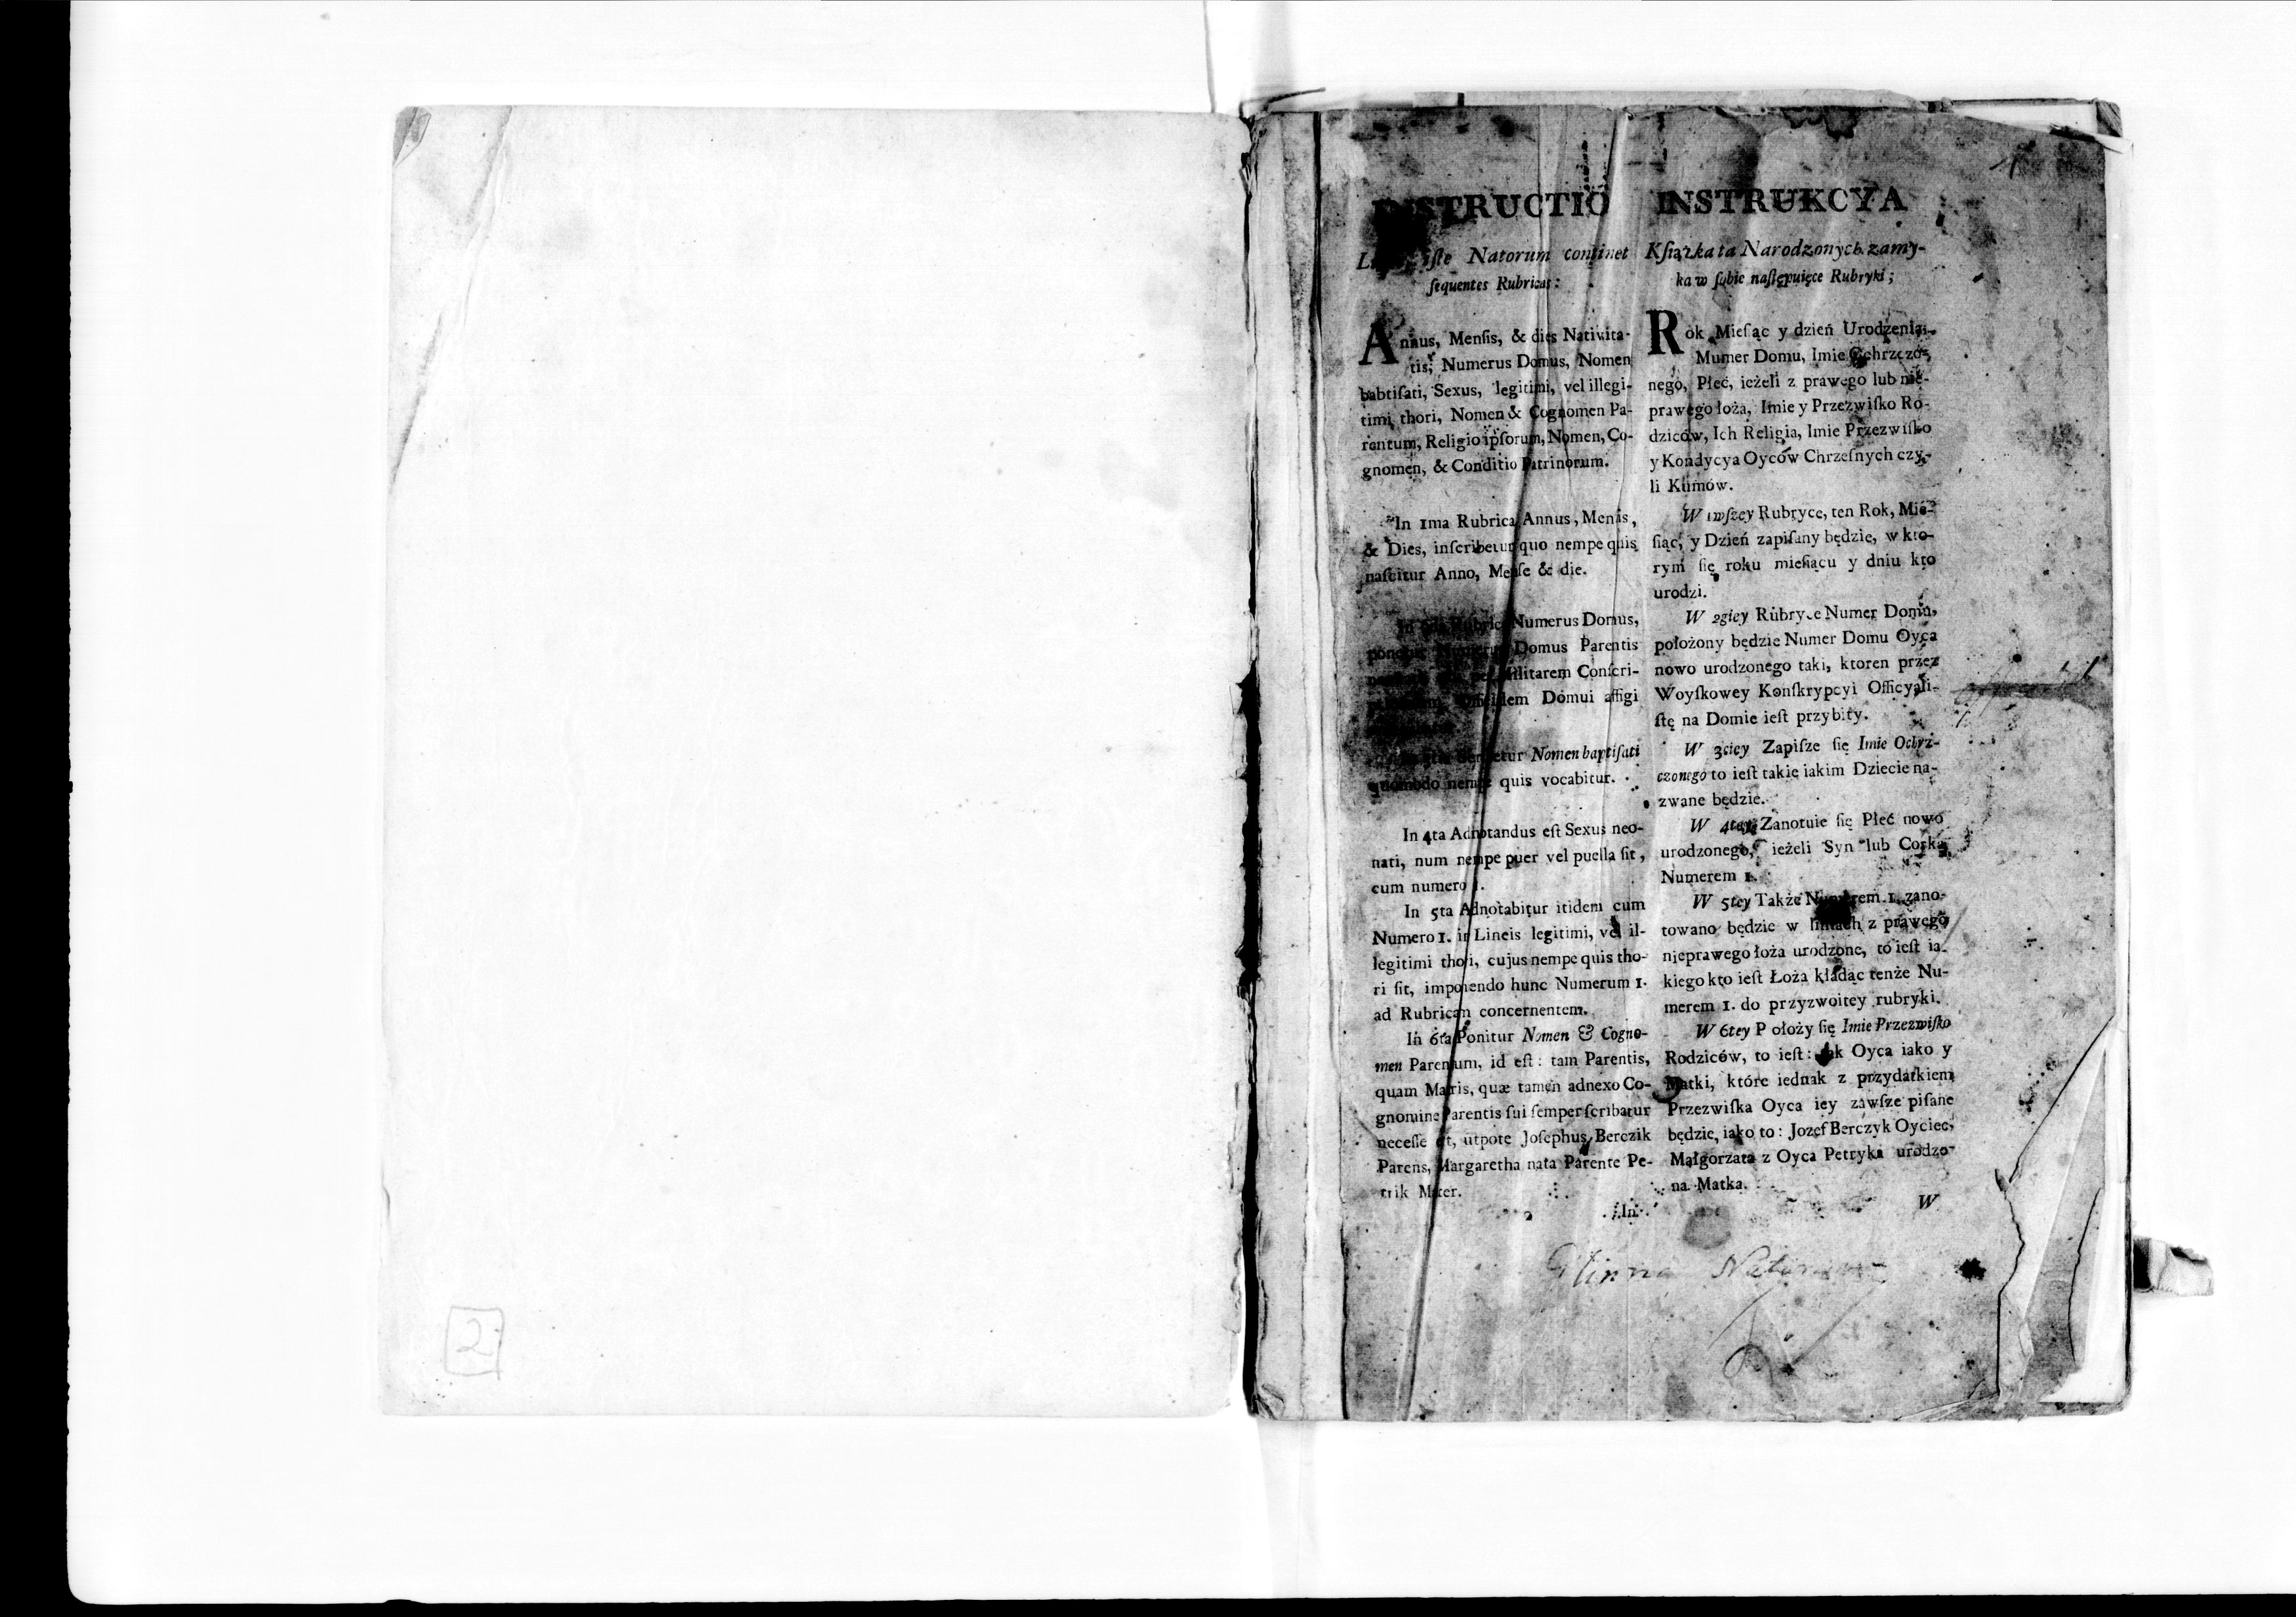 2
INSTRUCTIO
iſte Natorum continet
ſequentes Rubricas:
Annus, Menſis, & dies Nativita-
tis, Numerus Domus, Nomen
babtiſati, Sexus, legitimi, vel illegi-
timi thori, Nomen & Cognomen Pa-
rentum, Religio ipſorum, Nomen, Co-
gnomen, & Conditio Patrinorum.
In 1ma Rubrica Annus, Menſis,
& Dies, inſcribetur quo nempe quis
naſcitur Anno, Menſe & die.
In Numerus Domus,
Numerus Domus Parentis
Militarem Conſcri-
Domui affigi
Nomen baptiſati
quomodo nempe quis vocabitur.
In 4ta Adnotandus eſt Sexus neo-
nati, num nempe puer vel puella ſit,
cum numero 1.
In 5ta Adnotabitur itidem cum
Numero 1. in Lineis legitimi, vel il-
legitimi thori, cujus nempe quis tho-
ri ſit, imponendo hunc Numerum 1.
ad Rubricam concernentem.
In 6ta Ponitur Nomen & Cogno-
men Parentum, id eſt: tam Parentis,
quam Matris, quæ tamen adnexo Co-
gnomine Parentis ſui ſemper ſcribatur
neceſſe eſt, utpote Joſephus Berczik
Parens, Margaretha nata Parente Pe-
trik Mater.
In
INSTRUKCYA
Kſiążka ta Narodzonych zamy-
ka w ſobie naſtępuięce Rubryki;
Rok Mieſąc y dzień Urodzenia,
Mumer Domu, Imie Ochrzczo-
nego, Płeć, ieżeli z prawego lub nie-
prawego łoża, Imie y Przezwiſko Ro-
dziców, Ich Religia, Imie Przezwiſko
y Kondycya Oyców Chrzeſnych czy-
li Kumów.
W 1wſzey Rubryce, ten Rok, Mie-
ſiąc, y Dzień zapiſany będzie, w kto-
rym ſię roku mieſiącu y dniu kto
urodzi.
W 2giey Rubryce Numer Domu,
położony będzie Numer Domu Oyca
nowo urodzonego taki, ktoren przez
Woyſkowey Konſkrypcyi Officyali-
ſtę na Domie ieſt przybity.
W 3ciey Zapiſze ſię Imie Ochrz-
czonego to ieſt takie iakim Dziecie na-
zwane będzie.
W 4tey Zanotuie ſię Płeć nowo
urodzonego, ieżeli Syn lub Corka
Numerem 1.
W 5tey Także Numerem 1. zano-
towano będzie w liniach z prawego
nieprawego łoża urodzone, to ieſt ia-
kiego kto ieſt Łoża kładąc tenże Nu-
merem 1. do przyzwoitey rubryki.
W 6tey Położy ſię Imie Przezwiſko
Rodziców, to ieſt: jak Oyca iako y
Matki, które iednak z przydatkiem
Przezwiſka Oyca iey zawſze piſane
będzie, iako to: Jozef Berczyk Oyciec,
Małgorzata z Oyca Petryka urodzo-
na Matka.
W
Glinna Natorum